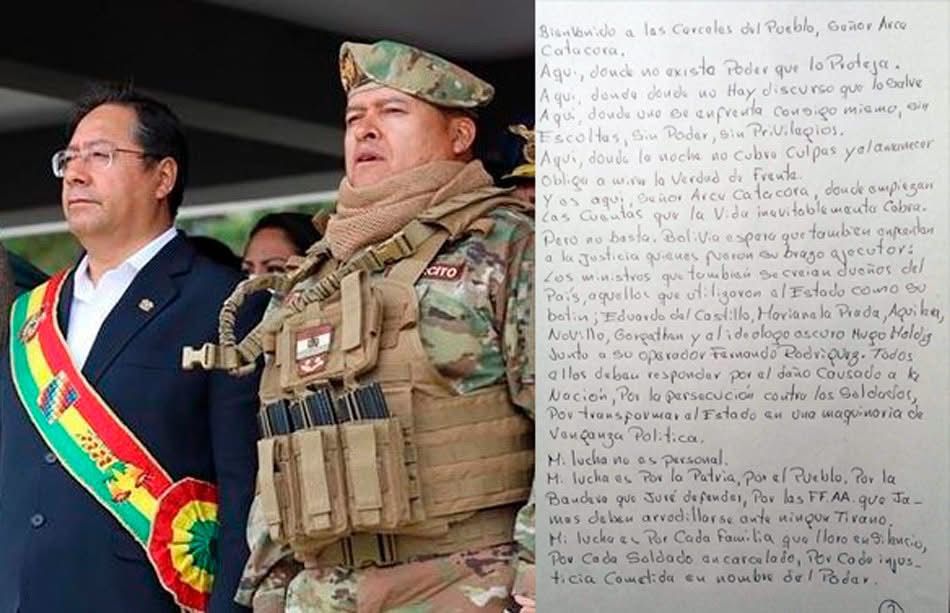 ÉRCITO
Bienvenido a las Carceles del Pueblo, Señor Arce
Catacora.
Aqui, donde no exista Poder que lo Proteja.
Aqui, donde donde no Hay discurso que lo Salve
Aqui, donde uno se enfrenta Consigo mismo, sin
Escoltas, Sin Poder, sin Privilagios.
Aqui, donde la noche no Cubra Culpas y al amanecer
Obliga a mirar la Verdad de Frente.
Y es aqui, Señor Arce Catacora, donde empiezan
Las Cuentas que la Vida inevitablemente Cobra.
Pero no basta. Bolivia espera que tambien enfrenten
a la Justicia quienes fueron su brazo ejecutor:
Los ministros que también se creian dueños del
País, aquellos que utilizaron al Estado como su
botin; Eduardo del Castillo, Mariana la Prada, Aguilera,
Novillo, y al ideologo oscuro Hugo Moldiz
Junto a su operador Fernando Rodriguez. Todos
ellos deben responder por el daño Causado a la
Nación, Por la persecución contra los Soldados,
Por transformar al Estado en una maquinaria de
Venganza Politica.
Mi lucha no es personal.
Mi lucha es Por la Patria, por el Pueblo, Por la
Bandera que Juré defender, Por las FF.AA. que Ja-
mas deben arrodillarse ante ningun Tirano.
Mi lucha es Por Cada Familia que lloro en Silencio,
Por Cada Soldado encarcelado, Por Cada injus-
ticia Cometida en nombre del Poder.